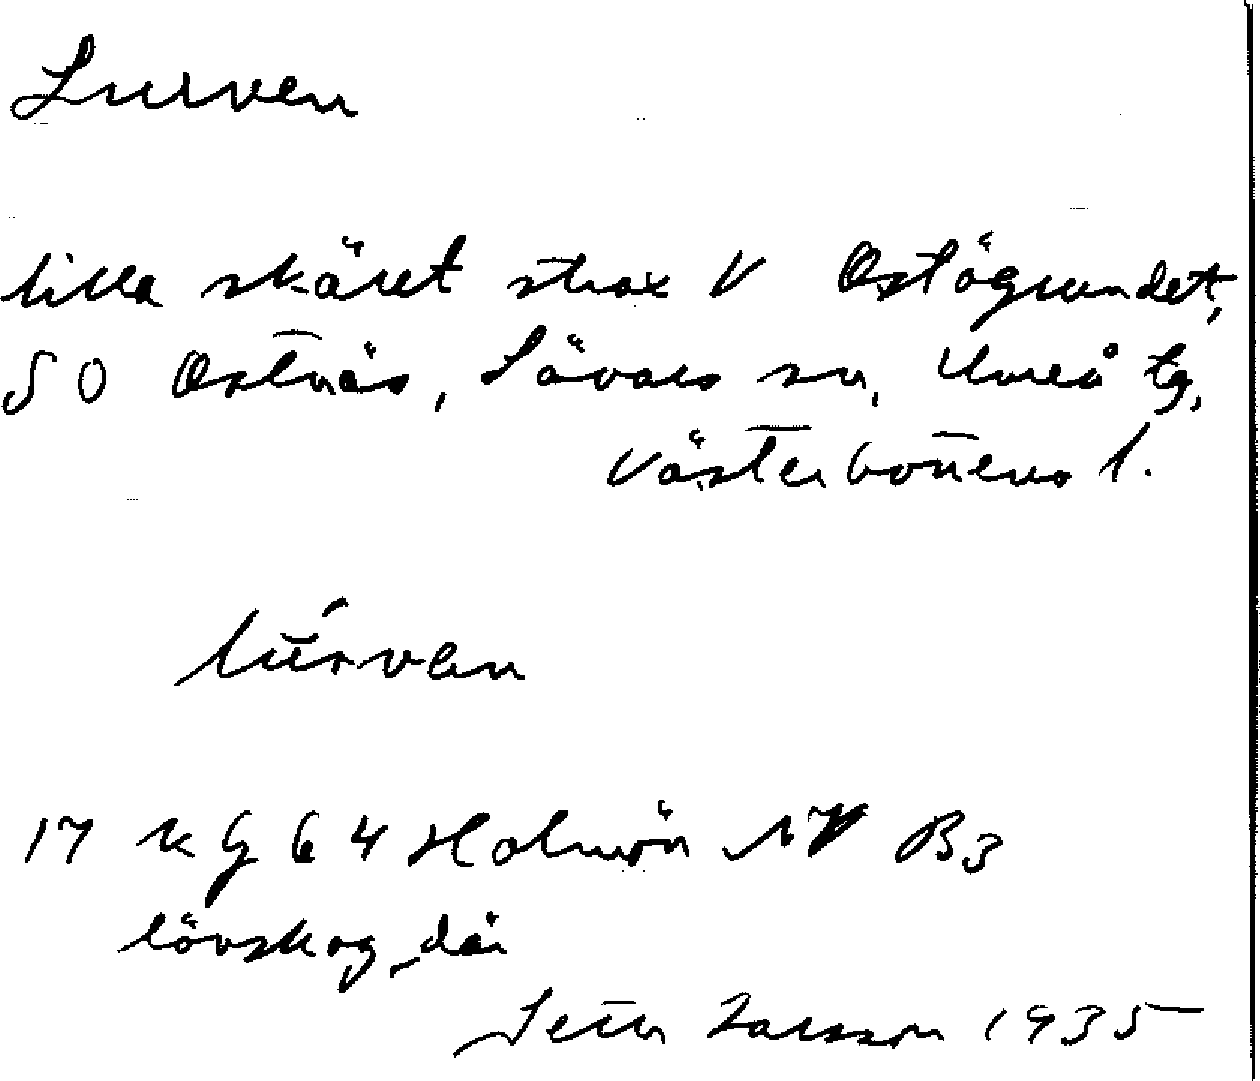 Lurven
lilla skäret strax V Ostögrundet,
SO Ostnäs, Sävars sn, Umeå tg,
Västerbottens l.
lúrven
17 k g 64 Holmön NV B3
lövskog där
Larsson 1935